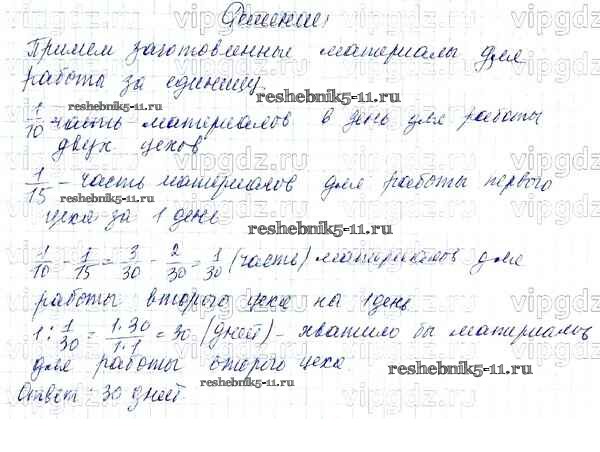 Решение:
Примем заготовленные материалы для
работы за единицу.
reshebnik5-11.ru
reshebnik5-11.ru
1/10 - часть материалов в день для работы
двух цехов
1/15 - часть материалов для работы первого
цеха за 1 день
reshebnik5-11.ru
reshebnik5-11.ru
1/10 - 1/15 = 3/30 - 2/30 = 1/30 (часть) материалов для
работы второго цеха на 1 день
1 : 1/30 = 1·30/1·1 = 30 (дней) - хватило бы материалов
reshebnik5-11.ru
для работы второго цеха
reshebnik5-11.ru
reshebnik5-11.ru
Ответ: 30 дней.
vipgdz.ru